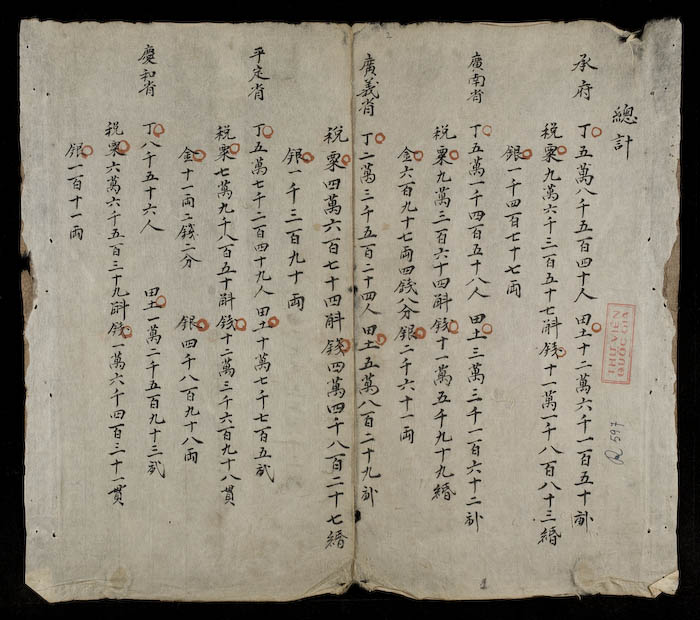 總計
承府
丁五萬八千五百四十人 田土十二萬六千一百五十畝
稅粟九萬六千三百五十七斛 錢十一萬一千八百八十三緡
銀一千四百七十七両
廣南省
丁五萬一千四百五十八人 田土三萬三千一百六十二畝
稅粟九萬三百六十四斛 錢十一萬五千九十九緡
金六百九十七両四錢八分 銀二千六十一両
廣義省
丁二萬三千五百二十四人 田土五萬八百二十九畝
稅粟四萬六百七十四斛 錢四萬四千八百二十七緡
銀一千三百九十両
平定省
丁五萬七千二百四十九人 田土十萬七千七百五畝
稅粟七萬九千八百五十斛 錢十二萬三千六百九十八貫
金十一両二錢二分 銀四千八百九十八両
慶和省
丁八千五十六人 田土一萬二千五百九十三畝
稅粟六萬六千五百三十九斛 錢一萬六千四百三十一貫
銀一百十一両
THƯ VIỆN
QUỐC GIA
R 597